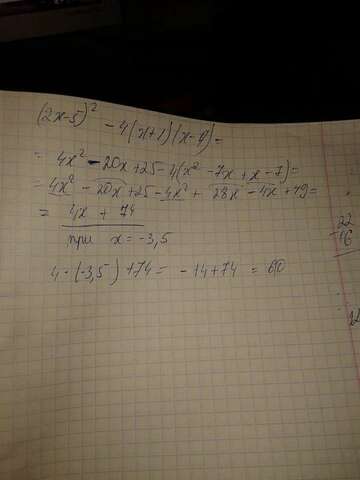 (2x-5)² - 4(x+1)(x-7) =
= 4x² - 20x + 25 - 4(x² - 7x + x - 7) =
= 4x² - 20x + 25 - 4x² + 28x - 4x + 49 =
= 4x + 74
при x = -3,5
4 · (-3,5) + 74 = - 14 + 74 = 60
22
16